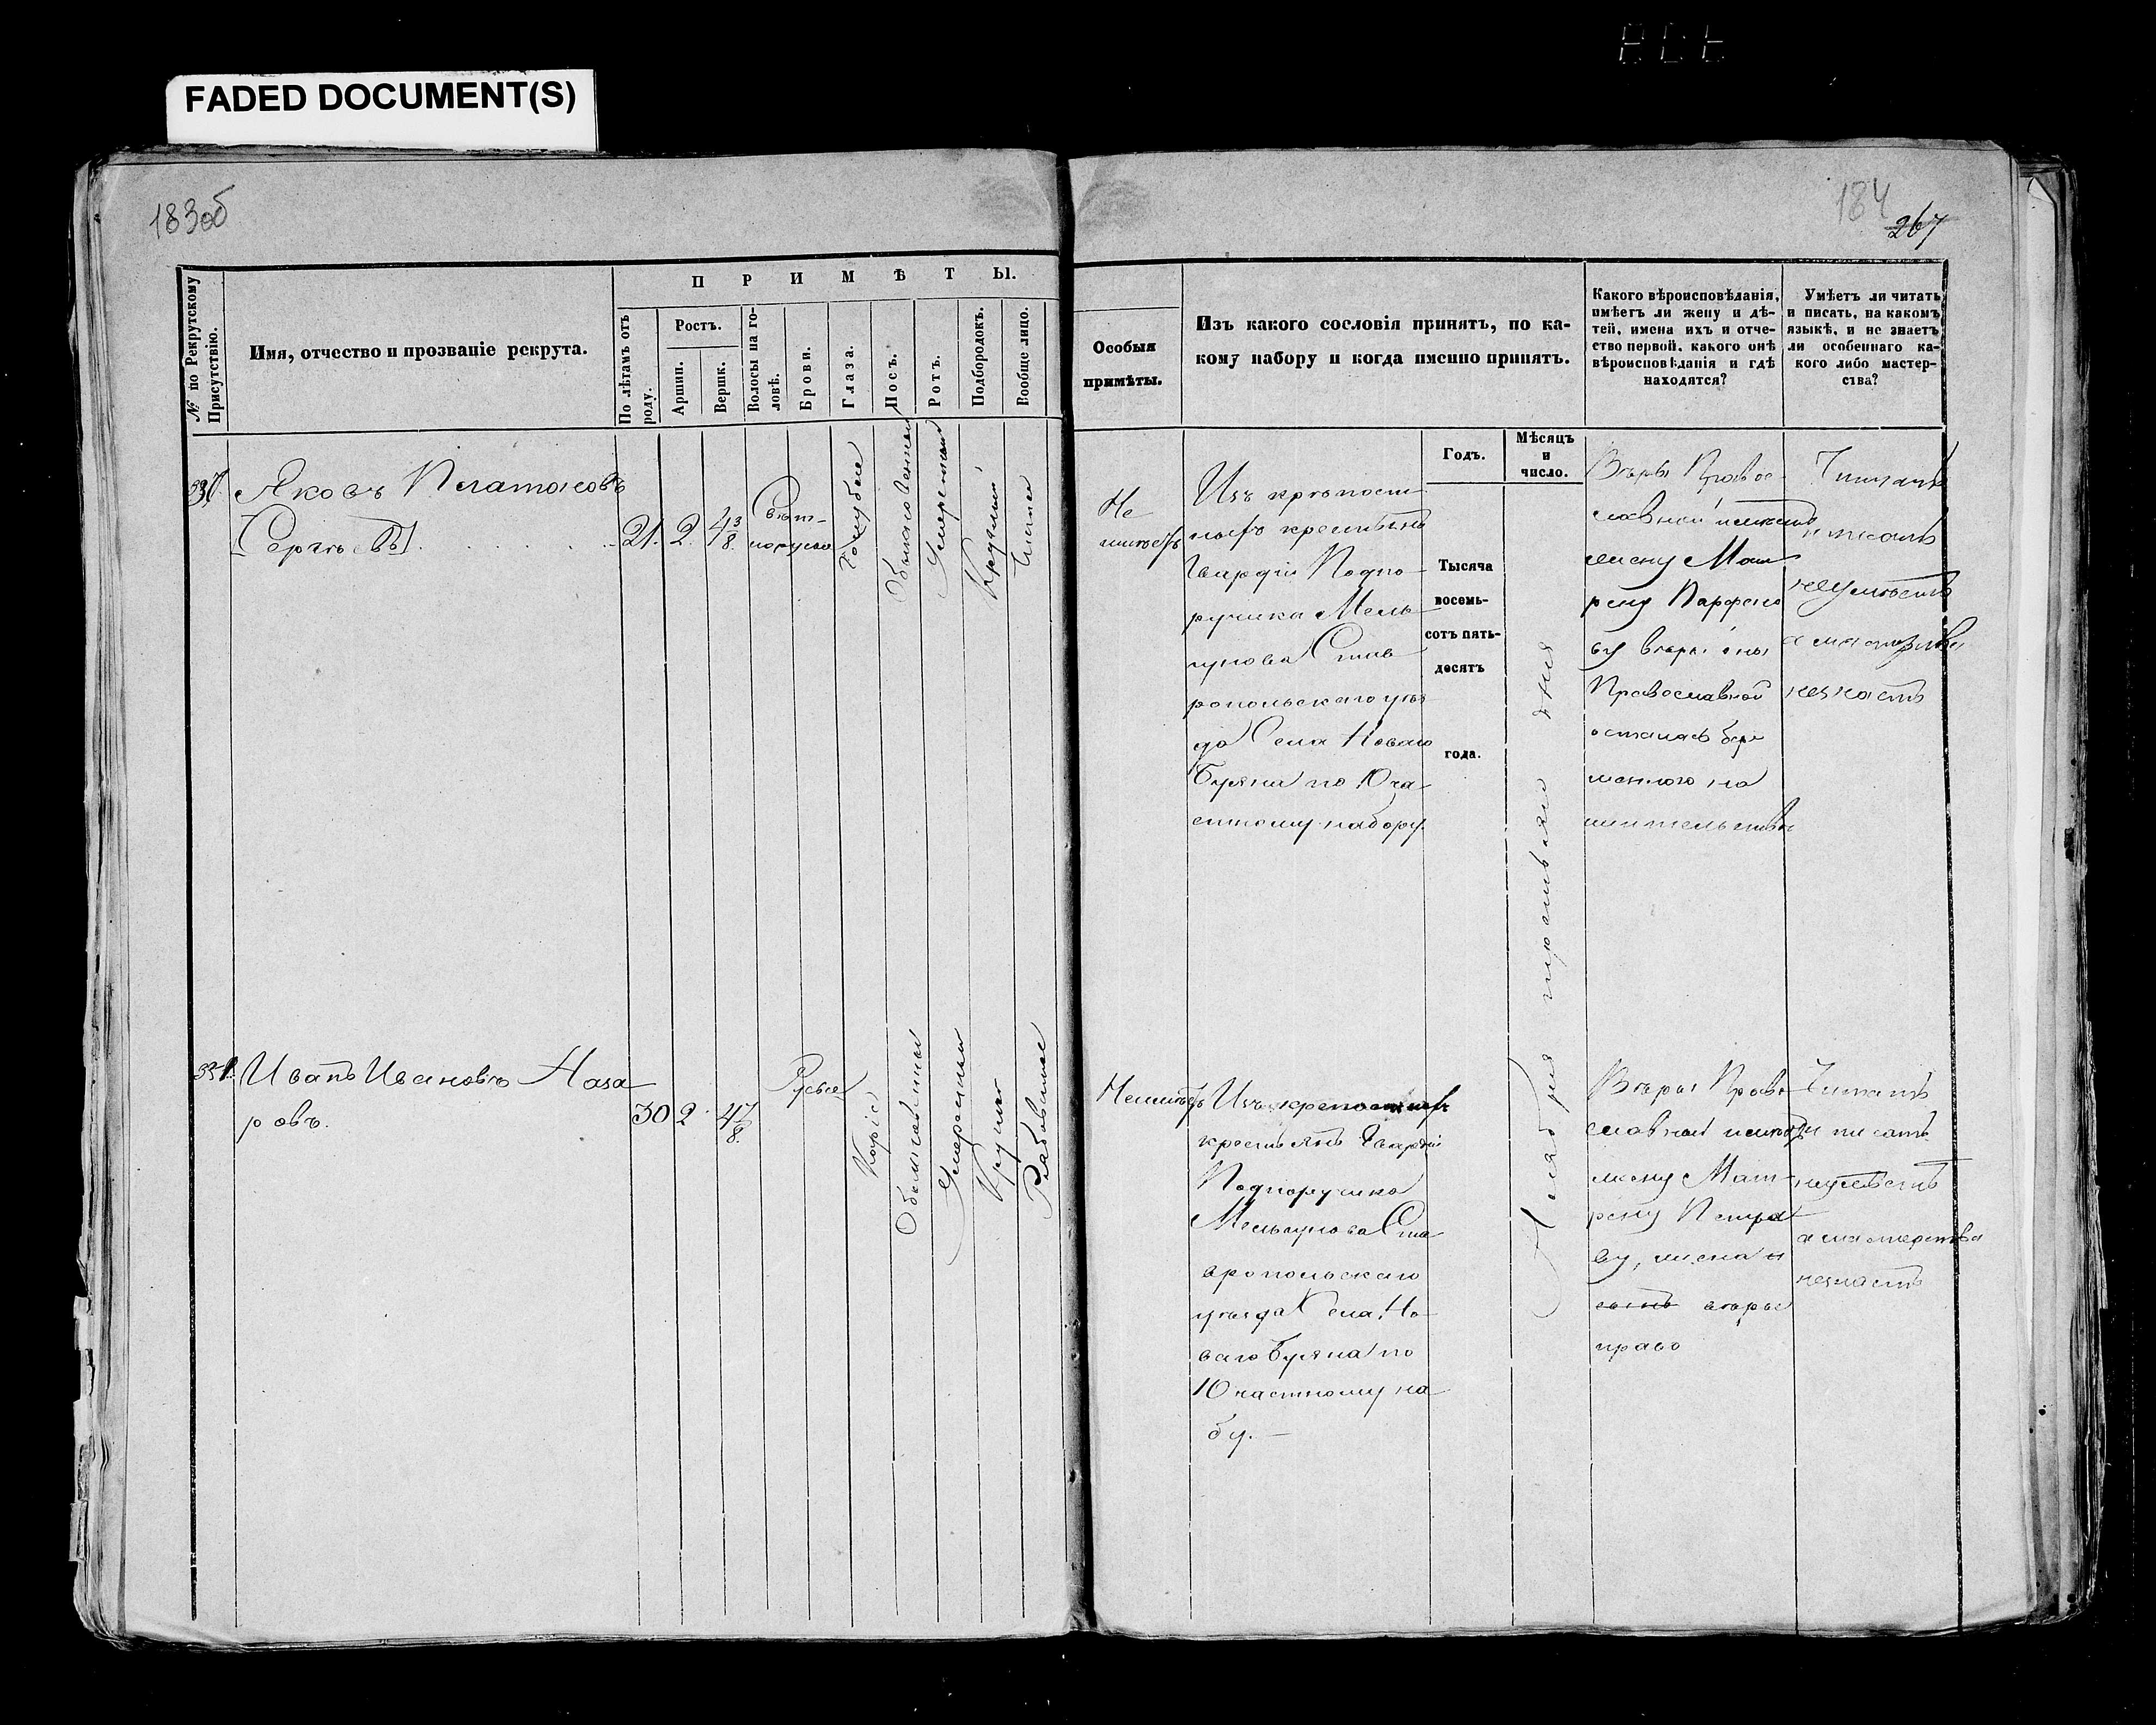 FADED DOCUMENT(S)
183об
184
267
№ по Рекрутскому Присутствію.
Имя, отчество и прозваніе рекрута.
ПРИМѢТЫ.
По лѣтамъ отъ роду.
Ростъ.
Аршин.
Вершк.
Волосы на головѣ.
Брови.
Глаза.
Носъ.
Ротъ.
Подбородокъ.
Вообще лицо.
Особыя
примѣты.
Изъ какого сословія принятъ, по ка-
кому набору и когда именно принятъ.
Какого вѣроисповѣданія,
имѣетъ ли жену и дѣ-
тей, имена ихъ и отче-
ство первой, какого онѣ
вѣроисповѣданія и гдѣ
находятся?
Умѣетъ ли читать
и писать, на какомъ
языкѣ, и не знаетъ
ли особеннаго ка-
кого либо мастер-
ства?
Годъ.
Мѣсяцъ
и
число.
Яковъ Платоновъ
Сергѣевъ
21.
2.
4 3/8.
Свѣт-
лорусые
Голубые
Обыкновенный
Умеренный
Круглый
Чистое
Не
имѣетъ
Изъ крѣпост
ныхъ крестьянъ
Гвардіи Подпо
ручика Мель
гунова Став
ропольскаго уѣз
да Села Новаго
Буяна по 10 ча
стному набору.
Тысяча
восемь-
сотъ пять-
десятъ
года.
Ноября третьяго дня
Вѣры Правос
лавной имѣетъ
жену Мат
рену Парфено
ву вѣры она
Православной
осталась бере
менною на
жительствѣ
Читать
и писать
неумѣетъ
а мастерства
незнаетъ
Иванъ Ивановъ Наза
ровъ.
30
2
4 7/8.
Русые
Каріе
Обыкновенный
Умеренный
Круглый
Рябоватое
Неимѣетъ
Изъ крепостныхъ
крестьянъ Гвардіи
Подпоручика
Мельгунова Ста
вропольскаго
уѣзда Села Но
ваго Буяна по
10 частному на
бу.
Вѣры Право
славной имѣетъ
жену Мат
рену Петро
ву, жена
вѣры
право
Читать
и писать
неумѣетъ
а мастерства
незнаетъ